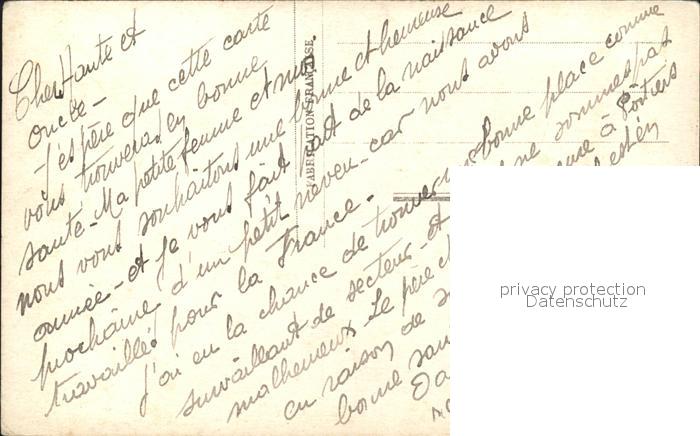 Chers tante et
oncle –
J'éspère que cette carte
vous trouvera en bonne
santé – Ma petite femme et moi
nous vous souhaitons une bonne et heureuse
année – et je vous fait part de la naissance
prochaine d'un petit neveu – car nous avons
travaillés pour la France.
j'ai eu la chance de trouver une bonne place comme
survaillant de secteur – et ne sommes pas
malheureux. Le père à Poitiers
en raison de est en
bonne san
FABRICATION FRANÇAISE
privacy protection
Datenschutz